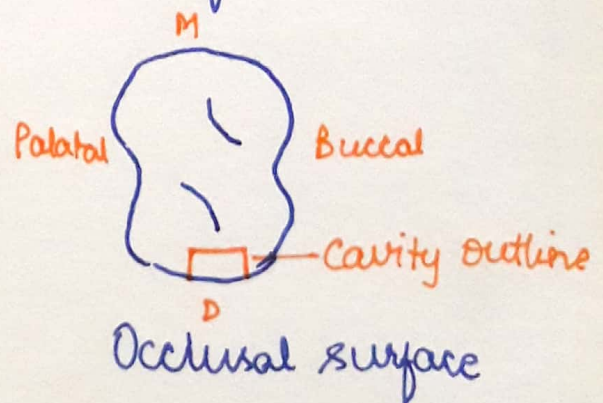 M
Palatal
Buccal
Cavity outline
D
Occlusal surface